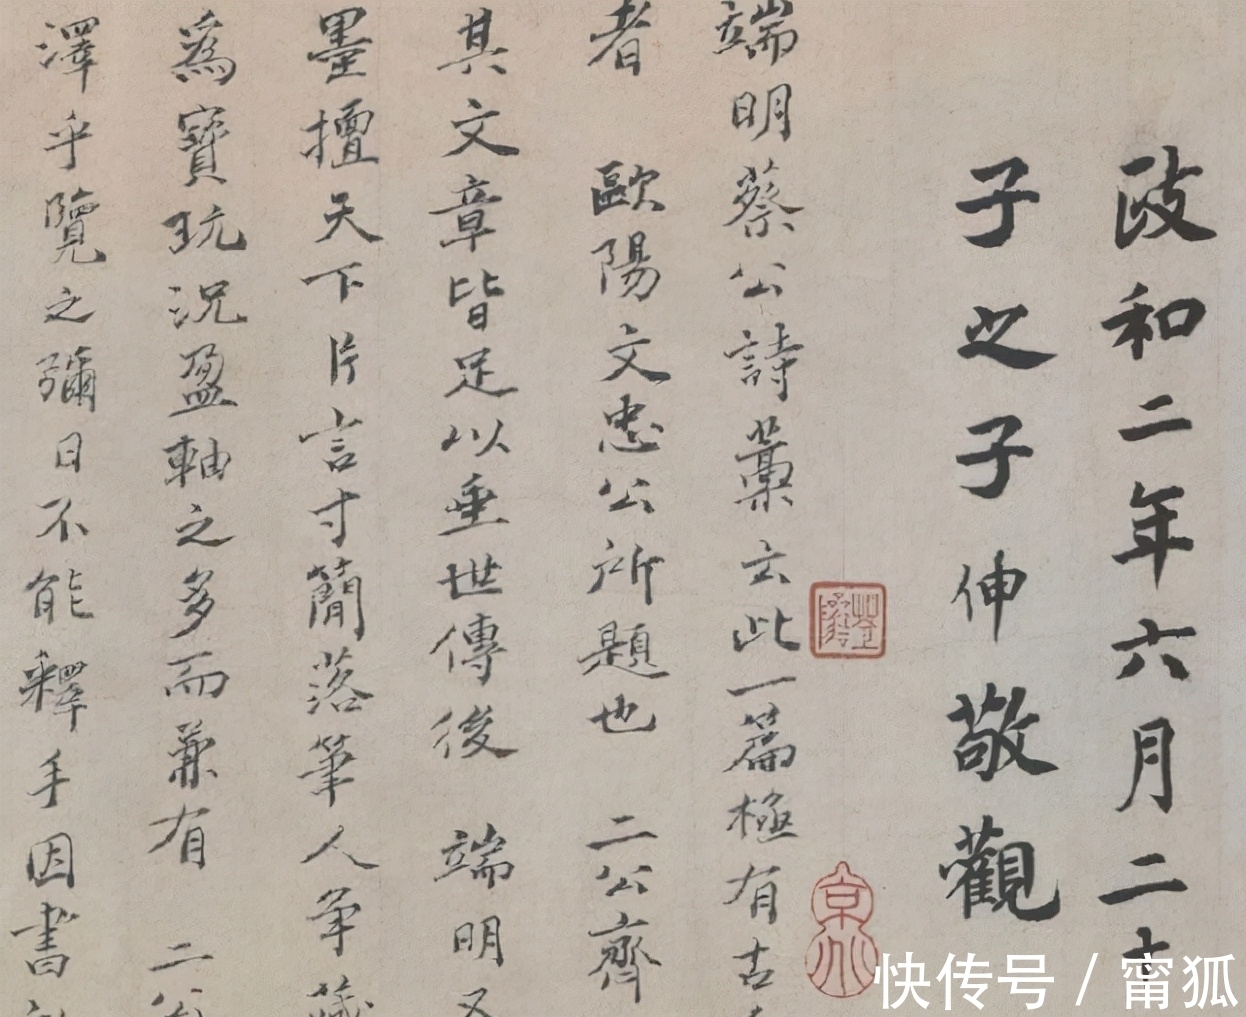 政和二年六月二
子之子伸敬觀
端明蔡公詩藁云此一篇極有古
者 歐陽文忠公所題也 二公齊
其文章皆足以垂世傳後 端明又
墨擅天下片言寸簡落筆人爭藏
爲寶玩況盈軸之多而兼有 二公
澤乎覽之彌日不能釋手因書
快传号 / 甯狐